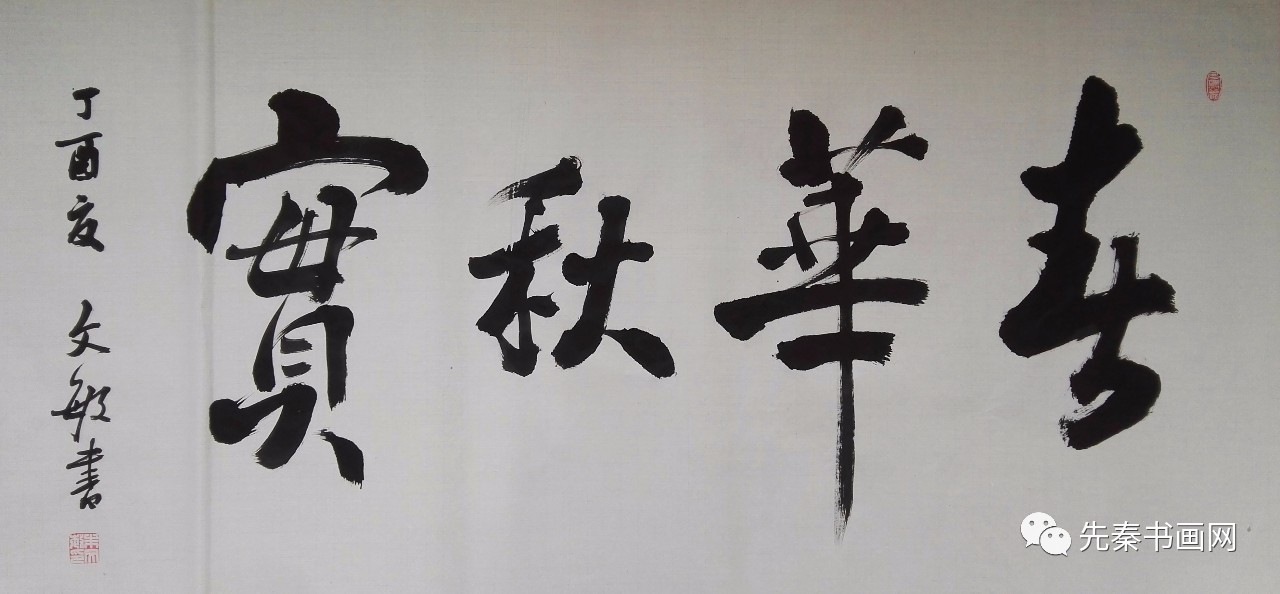 春華秋實
丁酉夏 文敏書
先秦书画网